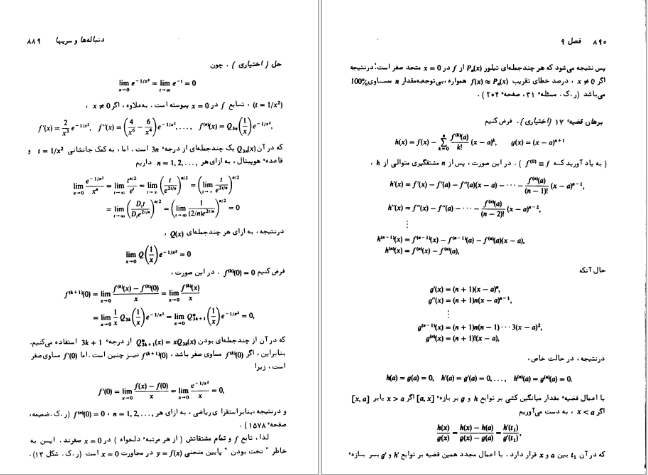 ۸۹۰ فصل ۹
پس نتیجه می‌شود که هر چندجمله‌ای تیلور Pₙ(x) از f در x = 0 متحد صفر است؛ درنتیجه
اگر x ≠ 0 ، درصد خطای تقریب f(x) ≈ Pₙ(x) همواره، بی‌توجه‌به‌مقدار n مساوی 100%
می‌باشد (ر.ک. مسئلهٔ ۳۱، صفحهٔ ۲۰۴) .
برهان قضیهٔ ۱۷ (اختیاری) . فرض‌کنیم
h(x) = f(x) − Σₖ₌₀ⁿ f⁽ᵏ⁾(a)/k! (x − a)ᵏ,   g(x) = (x − a)ⁿ⁺¹
( به یاد آورید که f⁽⁰⁾ = f ) . در این صورت، پس از n مشتقگیری متوالی از h ،
h′(x) = f′(x) − f′(a) − f″(a)(x − a) − ··· − f⁽ⁿ⁾(a)/(n − 1)! (x − a)ⁿ⁻¹,
h″(x) = f″(x) − f″(a) − ··· − f⁽ⁿ⁾(a)/(n − 2)! (x − a)ⁿ⁻²,
⋮
h⁽ⁿ⁻¹⁾(x) = f⁽ⁿ⁻¹⁾(x) − f⁽ⁿ⁻¹⁾(a) − f⁽ⁿ⁾(a)(x − a),
h⁽ⁿ⁾(x) = f⁽ⁿ⁾(x) − f⁽ⁿ⁾(a),
حال آنکه
g′(x) = (n + 1)(x − a)ⁿ,
g″(x) = (n + 1)n(x − a)ⁿ⁻¹,
⋮
g⁽ⁿ⁻¹⁾(x) = (n + 1)n(n − 1) ··· 3(x − a)²,
g⁽ⁿ⁾(x) = (n + 1)!(x − a),
درنتیجه، در حالت خاص،
h(a) = g(a) = 0,  h′(a) = g′(a) = 0, ... ,  h⁽ⁿ⁾(a) = g⁽ⁿ⁾(a) = 0.
با اعمال قضیهٔ مقدار میانگین کشی بر توابع h و g بر بازهٔ [a, x] اگر x > a یابر [x, a]
اگر x < a ، به دست می‌آوریم
h(x)/g(x) = (h(x) − h(a))/(g(x) − g(a)) = h′(t₁)/g′(t₁),
که در آن t₁ بین a و x قرار دارد . با اعمال مجدد همین قضیه بر توابع h′ و g′ بر بازهٔ
دنباله‌ها و سریها ۸۸۹
حل (اختیاری) . چون
lim x→0 e^(−1/x²) = lim t→∞ e⁻ᵗ = 0
(t = 1/x²) ، تابع f در x = 0 پیوسته است . به‌علاوه ، اگر x ≠ 0 ،
f′(x) = 2/x³ e^(−1/x²),  f″(x) = (4/x⁶ − 6/x⁴) e^(−1/x²), ... , f⁽ⁿ⁾(x) = Q₃ₙ(1/x) e^(−1/x²),
که در آن Q₃ₙ(x) یک چندجمله‌ای از درجهٔ 3n است . اما ، به کمک جانشانی t = 1/x² و
قاعدهٔ هوپیتال ، به ازای هر n = 1, 2, ... داریم
lim x→0 e^(−1/x²)/xⁿ = lim t→∞ t^(n/2)/eᵗ = lim t→∞ (t/e^(2t/n))^(n/2) = (lim t→∞ t/e^(2t/n))^(n/2)
= lim t→∞ (Dₜt/Dₜe^(2t/n))^(n/2) = (lim t→∞ 1/((2/n)e^(2t/n)))^(n/2) = 0
درنتیجه ، به ازای هر چندجمله‌ای Q(x) ،
lim x→0 Q(1/x) e^(−1/x²) = 0
فرض کنیم f⁽ᵏ⁾(0) = 0 . در این صورت ،
f⁽ᵏ⁺¹⁾(0) = lim x→0 (f⁽ᵏ⁾(x) − f⁽ᵏ⁾(0))/x = lim x→0 f⁽ᵏ⁾(x)/x
= lim x→0 1/x Q₃ₖ(1/x) e^(−1/x²) = lim x→0 Q*₃ₖ₊₁(1/x) e^(−1/x²) = 0,
که در آن از چندجمله‌ای بودن Q*₃ₖ₊₁(x) = xQ₃ₖ(x) از درجهٔ 3k + 1 استفاده می‌کنیم.
بنابراین ، اگر f⁽ᵏ⁾(0) مساوی صفر باشد ، f⁽ᵏ⁺¹⁾(0) نیز چنین است . اما f′(0) مساوی‌صفر
است ، زیرا
f′(0) = lim x→0 (f(x) − f(0))/x = lim x→0 e^(−1/x²)/x = 0,
و درنتیجه ،بنابراستقرای‌ریاضی ، به ازای هر n = 1, 2, ... ، f⁽ⁿ⁾(0) = 0 (ر.ک.ضمیمه،
صفحهٔ ۱۵۷۸) .
لذا ، تابع f و تمام مشتقاتش ( از هر مرتبهٔ دلخواه ) در x = 0 صفرند . ایس به
خاطر " تخت بودن " پایین منحنی y = f(x) در مجاورت x = 0 است (ر.ک. شکل ۱۳) .